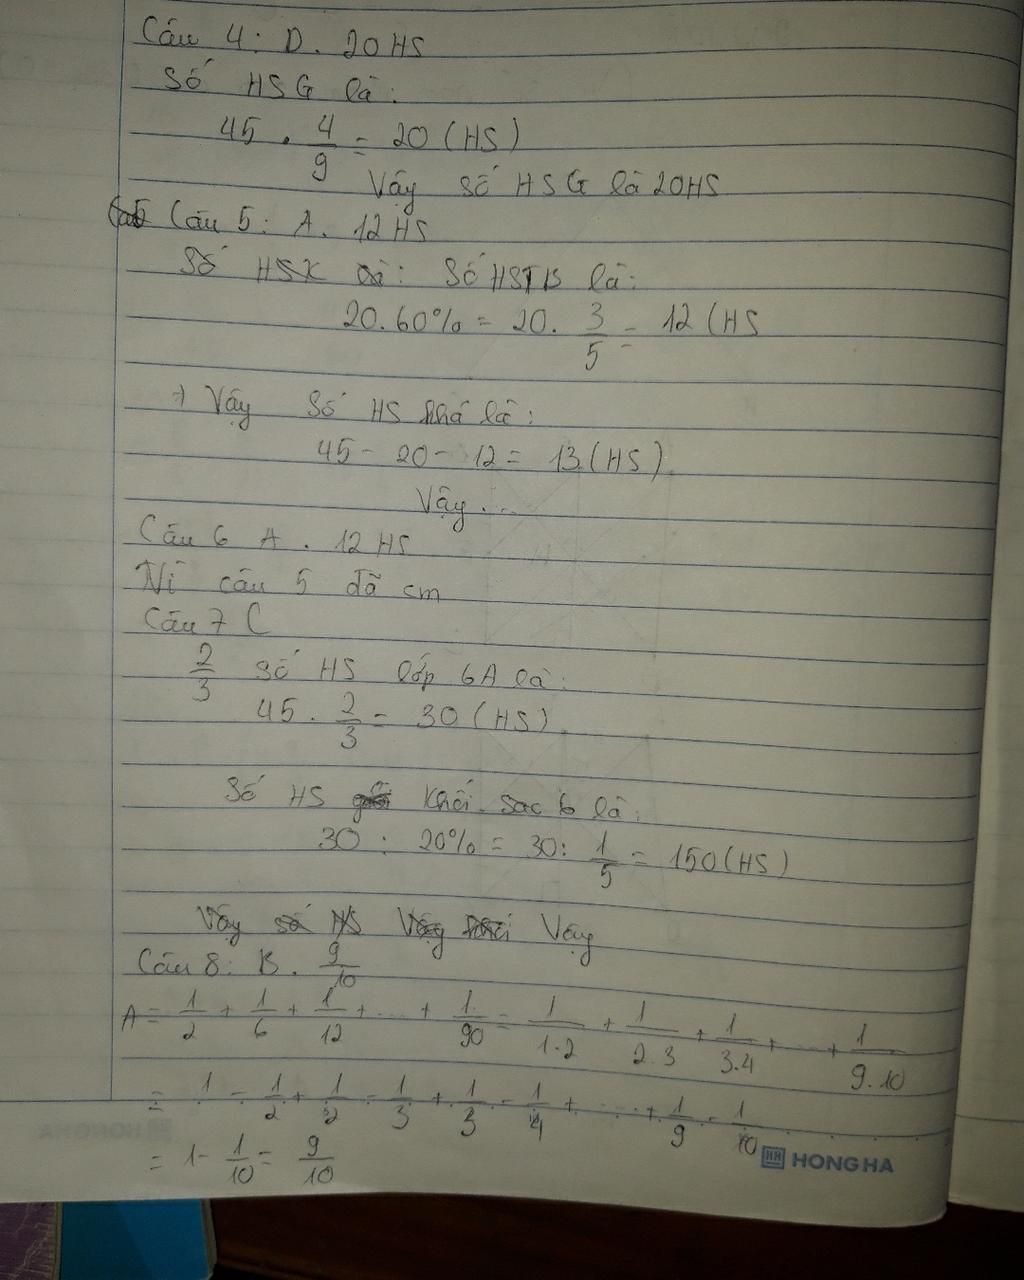 Câu 4: D. 20HS
Số HSG là:
45 . 4/9 = 20 (HS)
Vậy số HSG là 20HS
Câu 5: A. 12HS
Số HSK là: Số HSTB là:
20.60% = 20. 3/5 = 12 (HS
Vậy Số HS khá là:
45 - 20 - 12 = 13 (HS)
Vậy...
Câu 6 A. 12 HS
Vì câu 5 đã cm
Câu 7 C
2/3 số HS lớp 6A là:
45 . 2/3 = 30 (HS)
Số HS khối 6 là:
30 : 20% = 30: 1/5 = 150 (HS)
Vậy số HS Vậy khối Vậy
Câu 8: B. 9/10
A = 1/2 + 1/6 + 1/12 + ... + 1/90 = 1/1.2 + 1/2.3 + 1/3.4 + ... + 1/9.10
= 1 - 1/2 + 1/2 - 1/3 + 1/3 - 1/4 + ... + 1/9 - 1/10
= 1 - 1/10 = 9/10
HONG HA